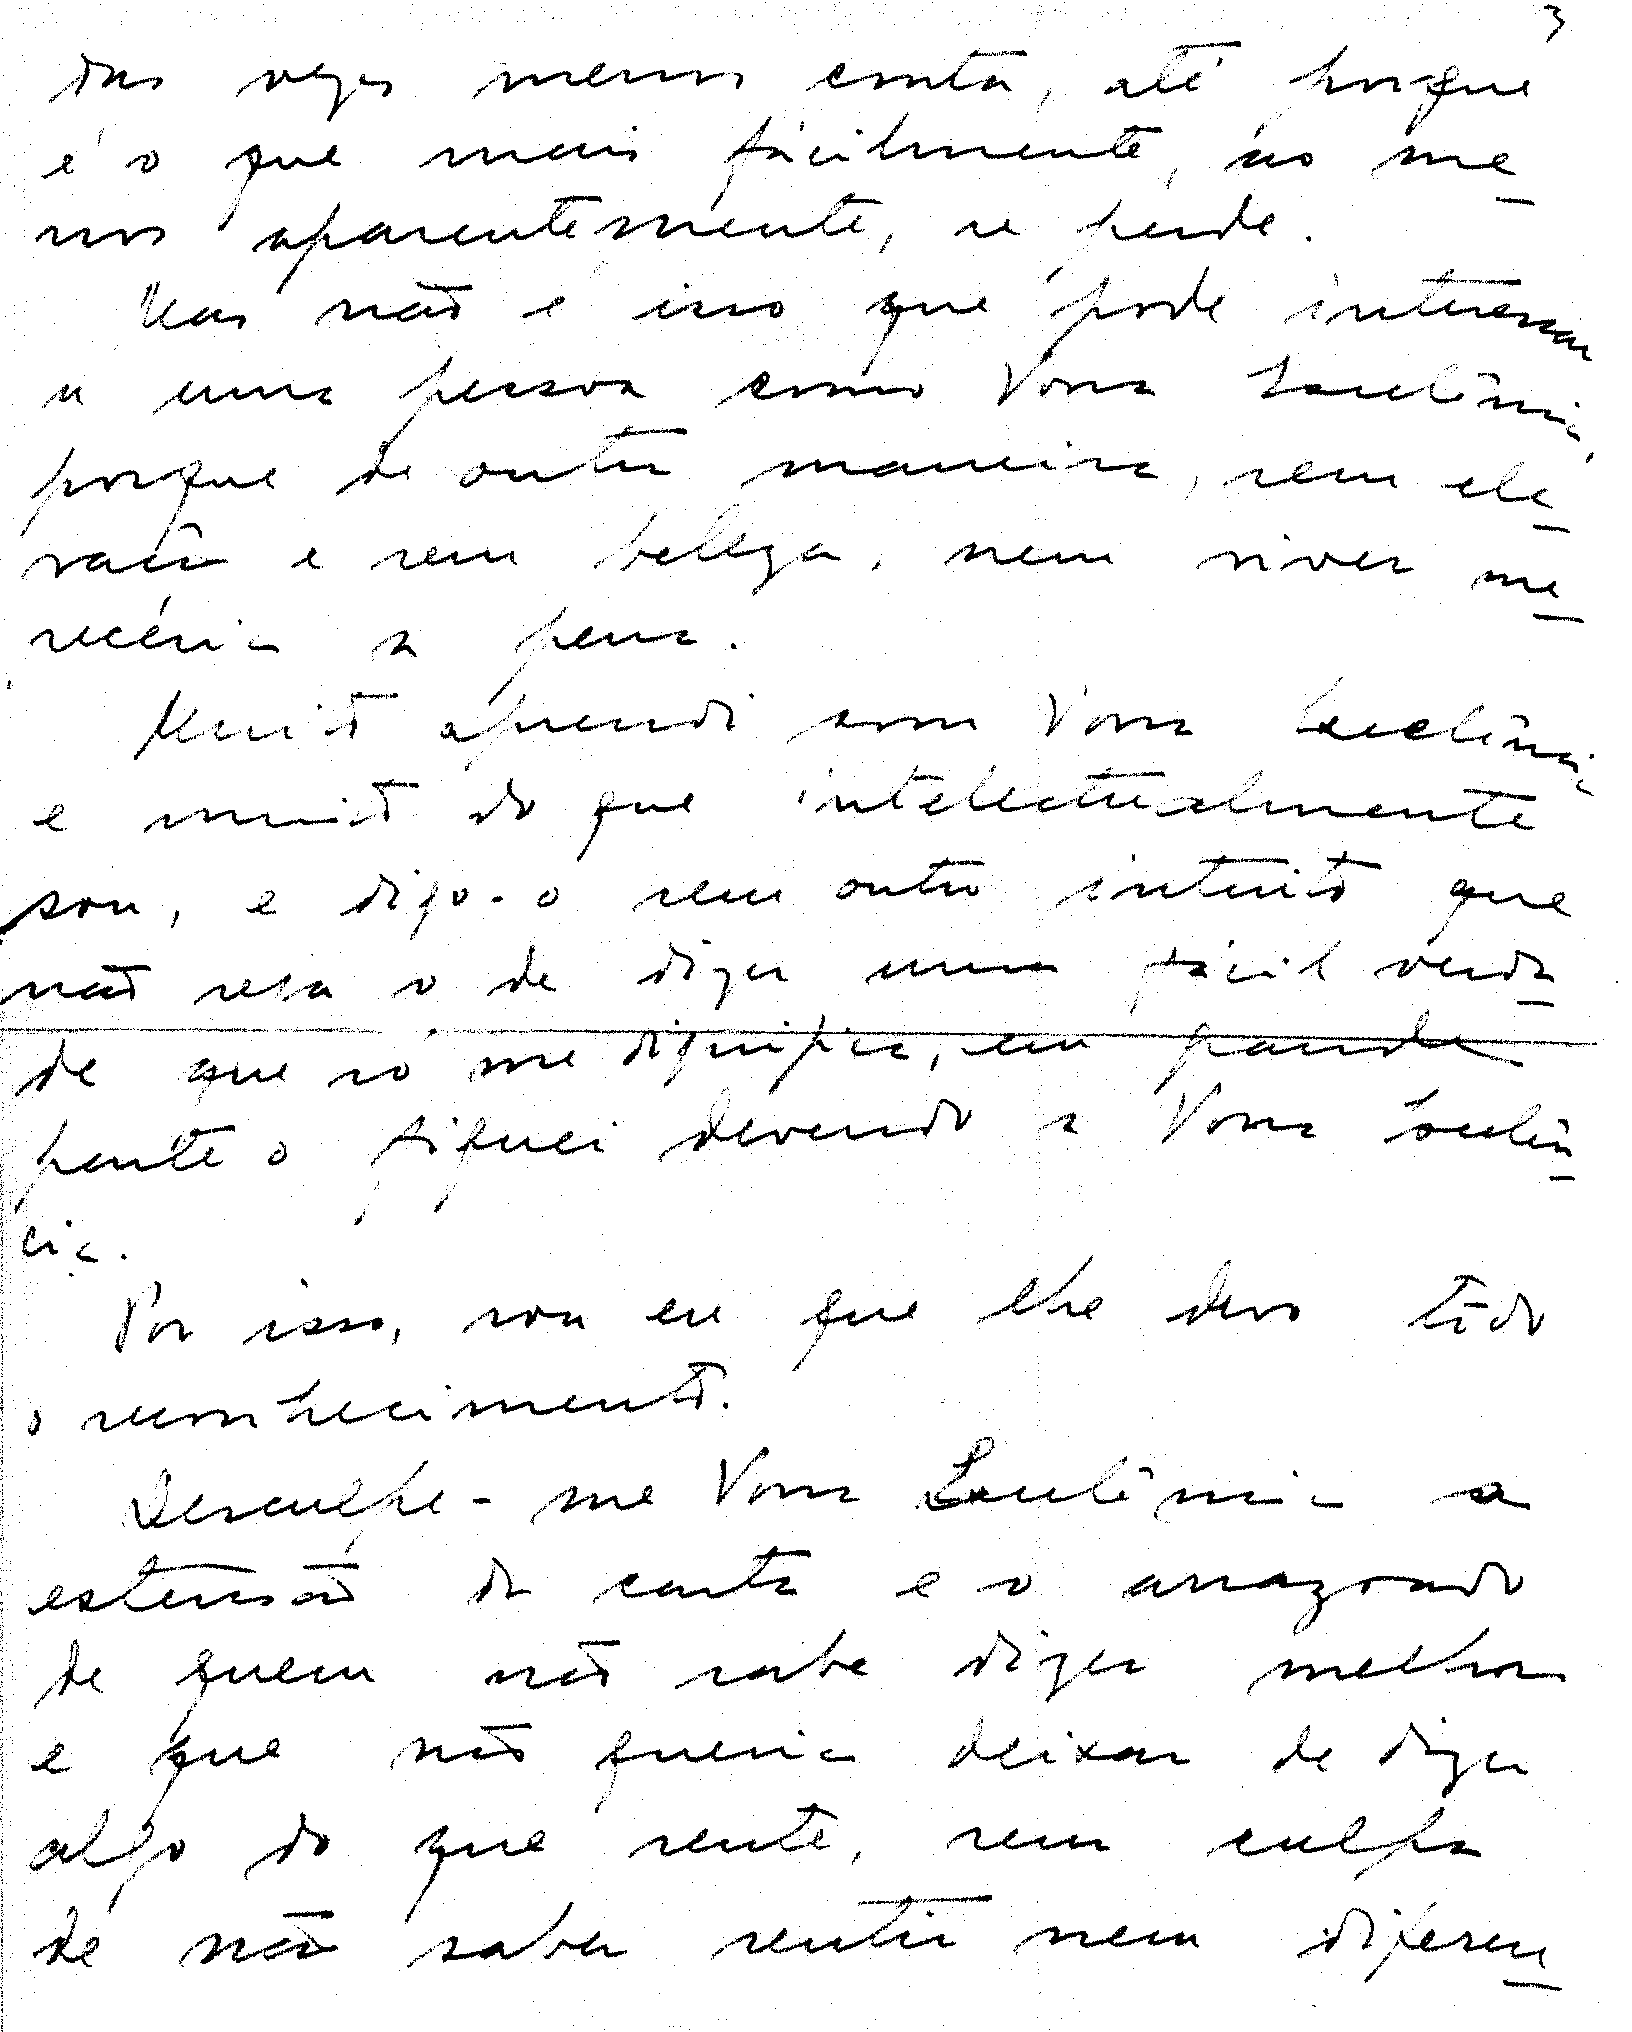 3
das vezes menos conta, até porque
é o que mais fàcilmente, ao me-
nos aparentemente, se perde.
Mas não é isso que pode interessar
a uma pessoa como Vossa Excelência,
porque de outra maneira, sem ele-
vação e sem beleza, nem viver me-
receria a pena.
Muito aprendi com Vossa Excelência
e muito do que intelectualmente
sou, e digo-o sem outro intuito que
não seja o de dizer uma fácil verda-
de que só me dignifica, em grande
parte o fiquei devendo a Vossa Excelên-
cia.
Por isso, sou eu que lhe devo todo
o reconhecimento.
Desculpe-me Vossa Excelência a
extensão da carta e o arrazoado
de quem não sabe dizer melhor
e que não queria deixar de dizer
algo do que sente, sem culpa
de não saber sentir nem diferen-